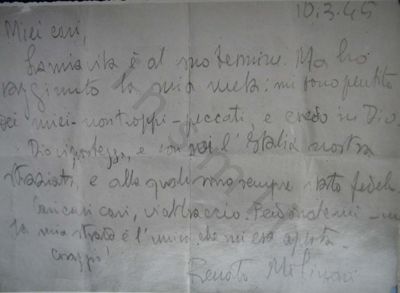 10.3.45
Miei cari,
La mia vita è al suo termine. Ma ho
raggiunto la mia meta: mi sono pentito
dei miei - non troppi - peccati, e credo in Dio.
Dio vi protegga, e con voi l'Italia nostra
straziata, e alla quale sono sempre stato fedele.
cari, vi abbraccio. Perdonatemi -
la mia strada è l'unica che mi era aperta.
Coraggio!
Renato